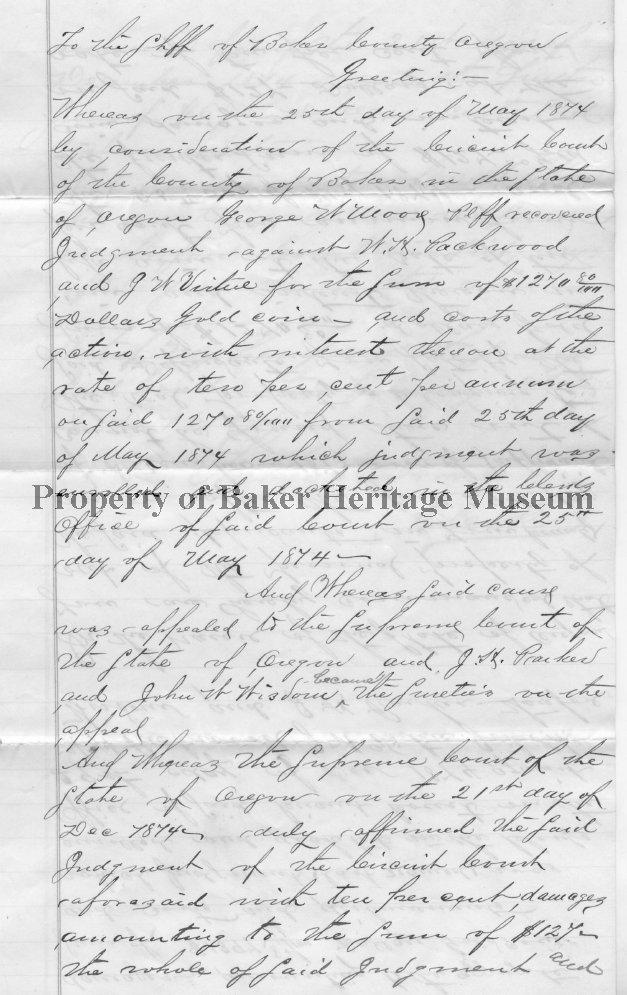 To the Shff of Baker County Oregon
Greeting:—
Whereas on the 25th day of May 1874
by consideration of the Circuit Court
of the County of Baker in the State
of Oregon George W Moore Plff recovered
Judgment against W.H. Packwood
and J W Virtue for the Sum of $1270 80/100
Dollars Gold coin — and costs of the
action, with interest thereon at the
rate of ten per cent per annum
on said 1270 80/100 from said 25th day
of May 1874 which judgment was
and docketed in the Clerks
Property of Baker Heritage Museum
Office of said Court on the 25th
day of May 1874—
And Whereas said cause
was appealed to the Supreme Court of
the State of Oregon and J.H. Parker
and John W Wisdom became the Sureties on the
appeal
And Whereas the Supreme Court of the
State of Oregon on the 21st day of
Dec 1874— duly affirmed the said
Judgment of the Circuit Court
aforesaid with ten per cent damages
amounting to the Sum of $127—
the whole of said Judgment and